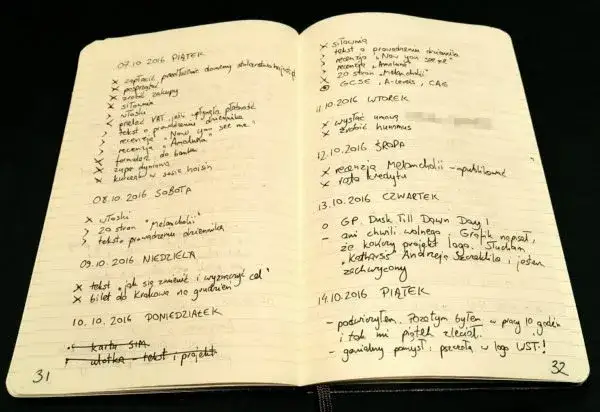 07.10.2016 PIĄTEK
× zapłacić, przedłużenie domeny
× poprosić
× zrobić zakupy
× siłownia
> włoski
× przelać VAT, jeśli wpłynęła płatność
> tekst o prowadzeniu dziennika
> recenzja "Now you see me"
> recenzja "Amoluna"
× formularz do banku
× zupa dyniowa
× kurczak w sosie hoisin
08.10.2016 SOBOTA
× włoski
> 20 stron "Melancholii"
> tekst o prowadzeniu dziennika
09.10.2016 NIEDZIELA
× tekst "jak się zmienić i wyznaczyć cel"
× bilet do Krakowa na grudzień
10.10.2016 PONIEDZIAŁEK
• karta SIM
• ulotka - tekst i projekt
31
× siłownia
× tekst o prowadzeniu dziennika
> recenzja "Now you see me"
> recenzje "Amoluna"
× 20 stron "Melancholii"
GCSE, A-levels, CAE
11.10.2016 WTOREK
× wysłać umowę
× zrobić hummus
12.10.2016 ŚRODA
× recenzja Melancholii - opublikować
× rata kredytu
13.10.2016 CZWARTEK
o GP. Dusk Till Dawn Day 1
- ani chwili wolnego. Grafik napisał,
że kończy projekt logo. Słucham
"Katharsis" Andrzeja i jestem
zachwycony
14.10.2016 PIĄTEK
- podwieziłem. Poza tym byłem w pracy 10 godzin
i tak mi piątek zleciał.
- genialny pomysł, pszczoła w logo UST!
32